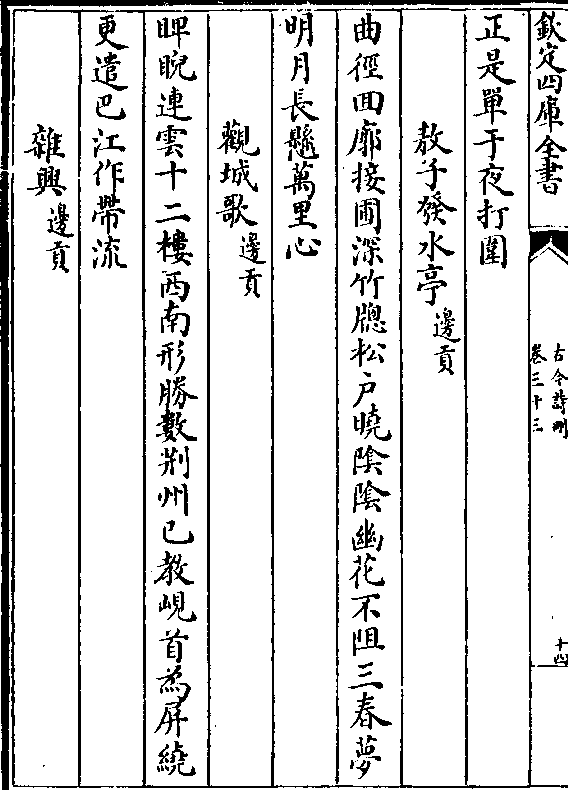 欽定四庫全書
古今詩刪
卷三十三
十四
正是單于夜打圍
敖子發水亭 邊貢
曲徑回廓接圃深竹牕松户曉陰陰幽花不阻三春夢
明月長懸萬里心
觀城歌 邊貢
睥睨連雲十二樓西南形勝數荆州已教峴首為屏繞
更遣巴江作帶流
雜興 邊貢